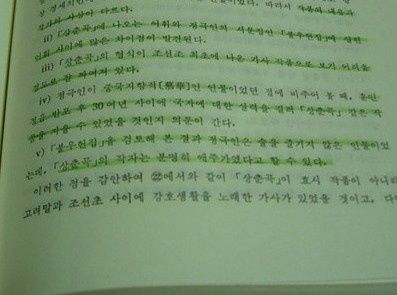 상 경세치인
작자의 사상이 다르다.
ii) 「상춘곡」에 나오는 어휘와 정극인의 시문집인 『불우헌집』에 실린
어휘 사이에 많은 차이점이 발견된다.
iii) 「상춘곡」의 형식이 조선조 최초에 나온 가사 작품으로 보기 어려울
정도로 잘 짜여져 있다.
iv) 정극인이 중국지향적[慕華]인 인물이었던 점에 비추어 볼 때, 훈민
정음 반포 후 30여년 사이에 국자에 대한 실력을 길러 「상춘곡」 같은 작
품을 지을 수 있었을 것인지 의문이 간다.
v) 『불우헌집』을 검토해 본 결과 정극인은 술을 즐기지 않은 인물이었
는데, 「상춘곡」의 작자는 분명히 애주가였다고 할 수 있다.
이러한 점을 감안하여 에서와 같이 「상춘곡」이 효시 작품이 아니라
고려말과 조선초 사이에 강호생활을 노래한 가사가 있었을 것이고,